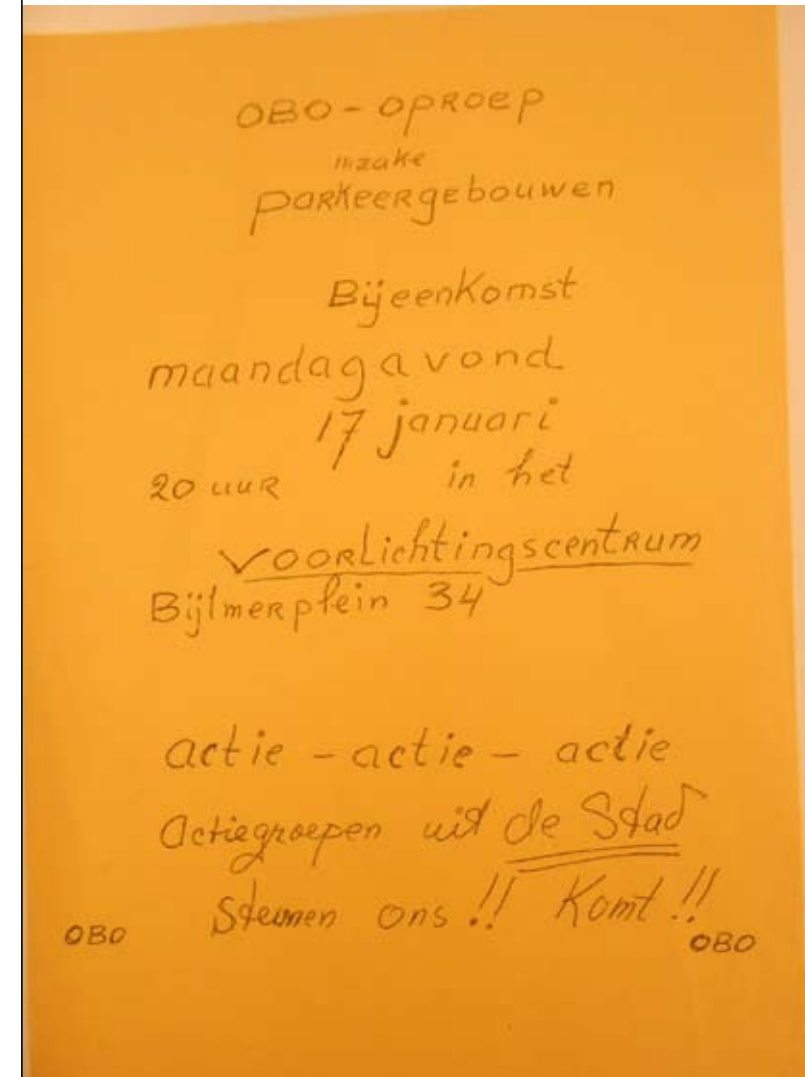 OBO - OPROEP
inzake
parkeergebouwen
Bijeenkomst
maandagavond
17 januari
20 uur in het
voorlichtingscentrum
Bijlmerplein 34
actie - actie - actie
Actiegroepen uit de Stad
Steunen ons !! Komt !!
OBO OBO